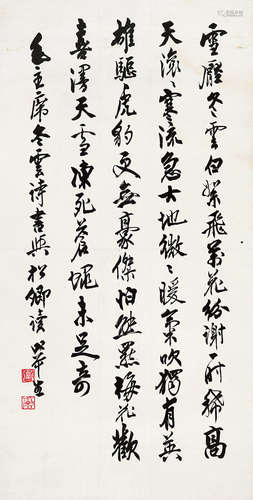 雪壓冬雲白絮飛萬花紛謝一時稀高
天滾〻寒流急大地微〻暖氣吹獨有英
雄驅虎豹更無豪傑怕熊羆梅花歡
喜漫天雪凍死蒼蠅未足奇
毛主席冬雲詩書與松卿讀